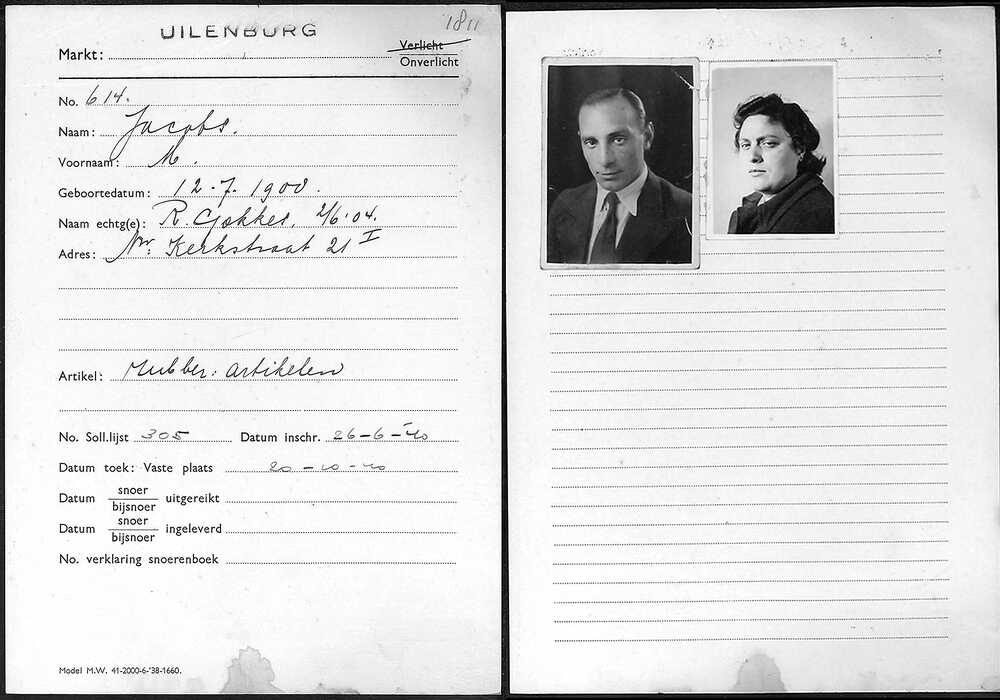 UILENBURG
1811
Markt:
Verlicht
Onverlicht
No. 614.
Naam: Jacobs.
Voornaam: M.
Geboortedatum: 12-7-1900.
Naam echtg(e): R. Gokkes, 2/6-'04.
Adres: Nw. Kerkstraat 21 I
Artikel: Rubber: artikelen
No. Soll.lijst 305 Datum inschr. 26-6-'40
Datum toek: Vaste plaats 20-10-40
Datum snoer/bijsnoer uitgereikt
Datum snoer/bijsnoer ingeleverd
No. verklaring snoerenboek
Model M.W. 41-2000-6-'38-1660.